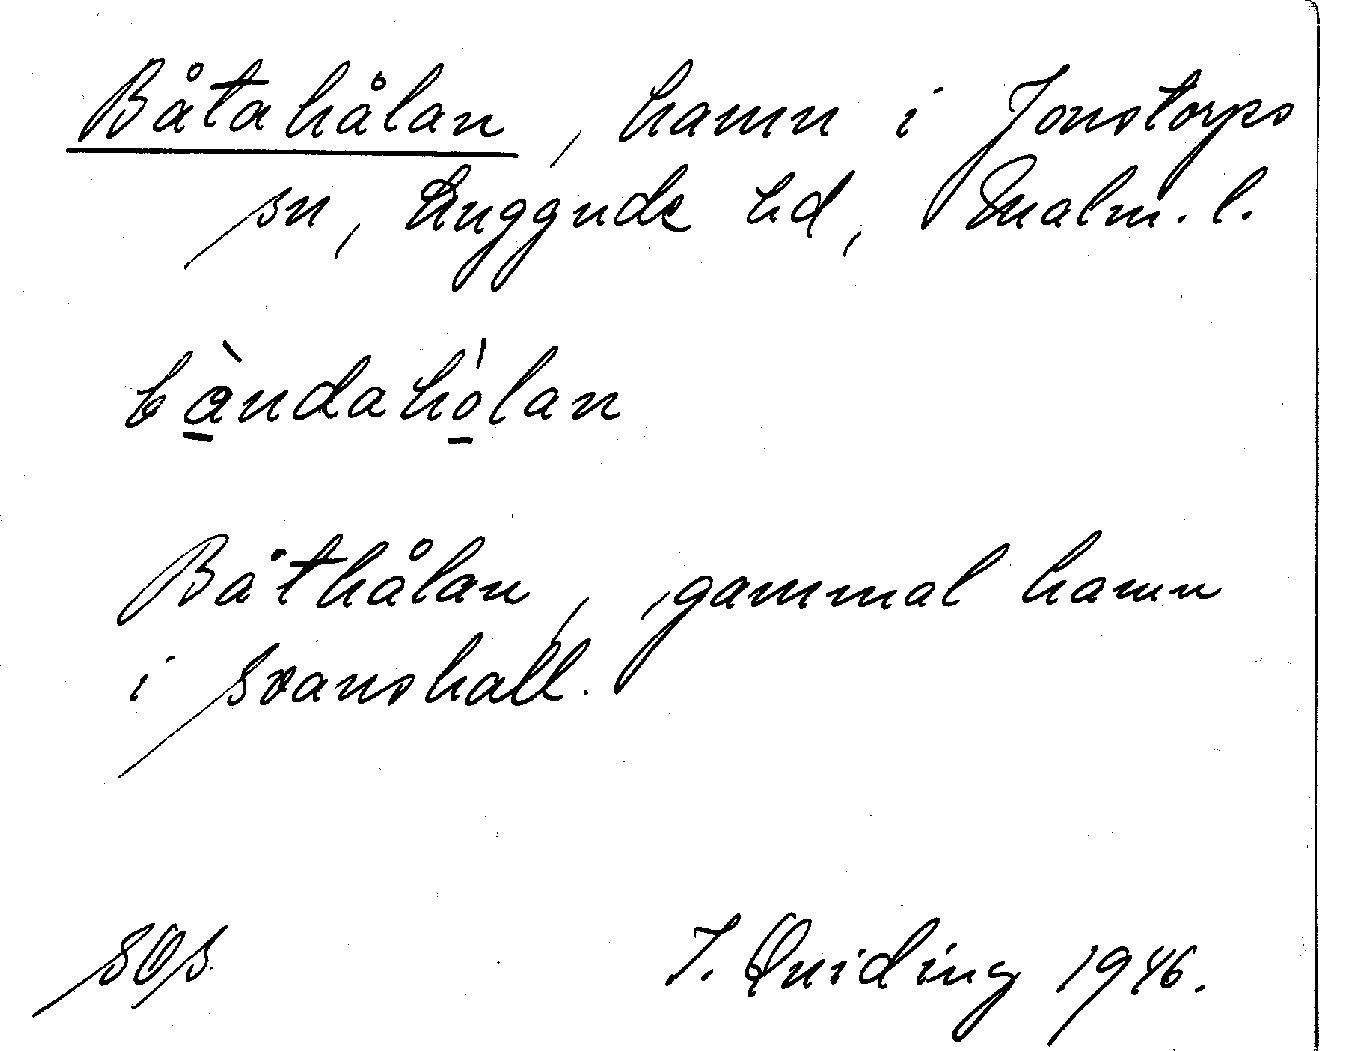 Båtahålan, hamn i Jonstorps
sn, Luggude hd, Malm. l.
bàndahólan
Båthålan, gammal hamn
i Svanshall.
SOS J. Quiding 1946.